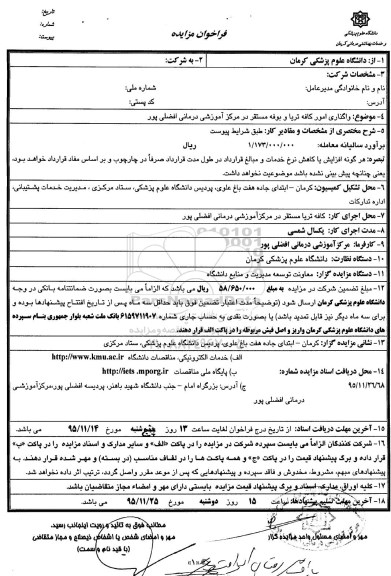 دانشگاه علوم پزشکی
و خدمات بهداشتی درمانی کرمان
تاریخ:
شماره:
پیوست:
فراخوان مزایده
۱- از: دانشگاه علوم پزشکی کرمان
۲- به شرکت:
۳- مشخصات شرکت:
نام و نام خانوادگی مدیرعامل: شماره ملی:
آدرس: کد پستی:
۴-موضوع: واگذاری امور کافه تریا و بوفه مستقر در مرکز آموزشی درمانی افضلی پور
۵- شرح مختصری از مشخصات و مقادیر کار: طبق شرایط پیوست
برآورد سالیانه معامله: ۱/۱۷۳/۰۰۰/۰۰۰ ریال
تبصره: هر گونه افزایش یا کاهش نرخ خدمات و مبالغ قرارداد در طول مدت قرارداد صرفاً در چارچوب و بر اساس مفاد قرارداد خواهد بود،
یعنی چنانچه پیش بینی نشده باشد موضوعیت نخواهد داشت.
۶- محل تشکیل کمیسیون: کرمان – ابتدای جاده هفت باغ علوی، پردیس دانشگاه علوم پزشکی، ستاد مرکزی ، مدیریت خدمات پشتیبانی،
اداره تدارکات
۷- محل اجرای کار: کافه تریا مستقر در مرکزآموزشی درمانی افضلی پور
۸- مدت اجرای کار: یکسال شمسی
۹- کارفرما: مرکزآموزشی درمانی افضلی پور
۱۰- دستگاه نظارت: دانشگاه علوم پزشکی کرمان
۱۱- دستگاه مزایده گزار: معاونت توسعه مدیریت و منابع دانشگاه
۱۲- مبلغ تضمین شرکت در مزایده به مبلغ ۵۸/۶۵۰/۰۰۰ ریال می باشد که الزاماً می بایست بصورت ضمانتنامه بانکی در وجه
دانشگاه علوم پزشکی کرمان ارسال شود (توضیحاً مدت اعتبار تضمین فوق باید حداقل سه ماه پس از تاریخ افتتاح پیشنهادها بوده و
برای سه ماه دیگر نیز قابل تمدید باشد) یا بصورت نقدی به حساب جاری شماره ۶۱۵۹۷۱۱۹۰۷ بانک ملت شعبه بلوار جمهوری بنام سپرده
های دانشگاه علوم پزشکی کرمان واریز و اصل فیش مربوطه را در پاکت الف قرار دهند.
۱۳- نشانی مزایده گزار: کرمان – ابتدای جاده هفت باغ علوی، پردیس دانشگاه علوم پزشکی، ستاد مرکزی
۱۴- محل دریافت اسناد مزایده شماره:
۹۵/۱۱/۳۶/۶۸
الف) خدمات الکترونیکی، مناقصات دانشگاه http://www.kmu.ac.ir
ب) پایگاه ملی مناقصات http://iets.mporg.ir
ج) آدرس: بزرگراه امام – جنب دانشگاه شهید باهنر، پردیسه افضلی پور،مرکزآموزشی
درمانی افضلی پور
۱۵- آخرین مهلت دریافت اسناد: از تاریخ درج فراخوان لغایت ساعت ۱۳ روز پنج شنبه مورخ ۹۵/۱۱/۱۴ می باشد.
۱۶- شرکت کنندگان الزاماً می بایست سپرده شرکت در مزایده را در پاکت «الف» و سایر مدارک و اسناد مزایده را در پاکت «ب»
قرار داده و برگ پیشنهاد قیمت را در پاکت «ج» و همه پاکت ها را در لفاف مناسب (در بسته) و مهر شده قرار دهند. به
پیشنهادهای مبهم، مشروط، مخدوش و فاقد سپرده و پیشنهادهایی که پس از موعد مقرر واصل گردد، ترتیب اثر داده نخواهد شد.
۱۷- کلیه اوراق، مدارک، اسناد و برگ پیشنهاد قیمت مزایده بایستی دارای مهر و امضاء مجاز متقاضیان باشد.
۱۸- آخرین مهلت تسلیم پیشنهادها: ساعت ۱۵ روز دوشنبه مورخ ۹۵/۱۱/۲۵ می باشد.
مطالب فوق به تائید و رویت اینجانب رسید.
مهر و امضای مسئول واحد مزایده گزار
مهر و امضای شخص یا اشخاص ذیصلاح و مجاز متقاضی
(با قید نام و سمت)